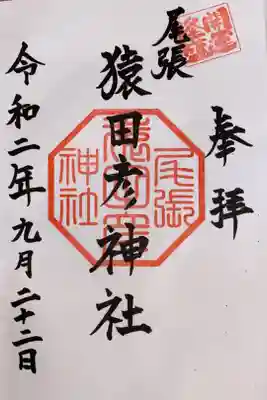 奉拝
尾張
猿田彦神社
尾張
猿田彦
神社
令和二年九月二十二日